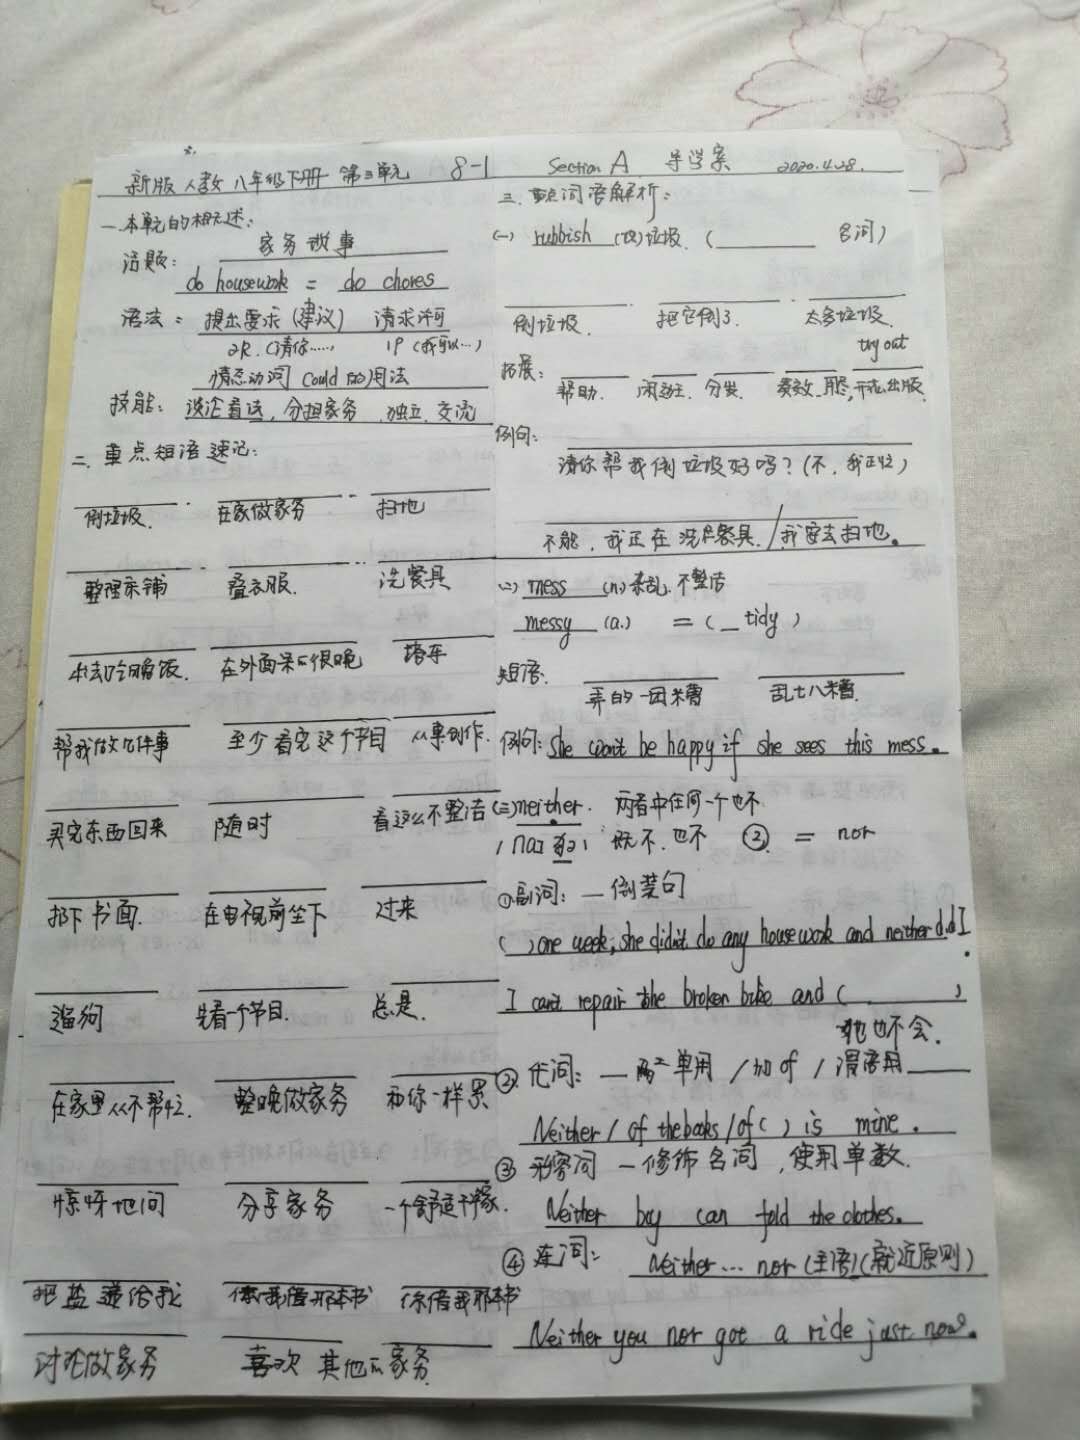 新版人教八年级下册 第三单元 8-1 Section A 导学案 2020.4.28.
一.本单元的概述:
话题: 家务故事
do housework = do chores
语法: 提出要求(建议) 请求许可
2P.(请你……) 1P(我可以…)
情态动词 Could 的用法
技能: 谈论看法,分担家务,独立,交流
二.重点短语速记:
倒垃圾. 在家做家务 扫地
整理床铺 叠衣服. 洗餐具
出去吃晚饭. 在外面呆很晚 搭车
帮我做几件事 至少看完这个节目 从事创作.
买完东西回来 随时 看这么不整洁
扔下书包. 在电视前坐下 过来
遛狗 先看一个节目. 总是.
在家里从不帮忙. 整晚做家务 和你一样累
惊讶地问 分享家务 一个舒适干净家.
把盐递给我 你借我那本书
讨论做家务 喜欢 其他的家务.
三.重点词语解析:
(一) rubbish (n) 垃圾. (______ 名词)
倒垃圾. 把它倒了. 太多垃圾.
try out
拓展: 帮助. 闲逛. 分发. 用尽, 出版
例句:
请你帮我倒垃圾好吗?(不,我正忙)
不能,我正在洗餐具./我要去扫地。
(二) mess (n) 杂乱.不整洁
messy (a.) = (_ tidy)
短语. 弄的一团糟 乱七八糟.
例句: She won't be happy if she sees this mess.
(三) neither. 两者中任何一个也不
既不.也不 ② = nor
①副词: — 倒装句
( ) one week, she didn't do any housework and neither did I.
I can't repair the broken bike and (______)
他也不会.
② 代词: — 单用 / 加 of / 谓语用____
Neither / of the books / of ( ) is mine.
③ 形容词 — 修饰名词,使用单数.
Neither boy can fold the clothes.
④ 连词: Neither … nor (主语)(就近原则)
Neither you nor got a ride just now.